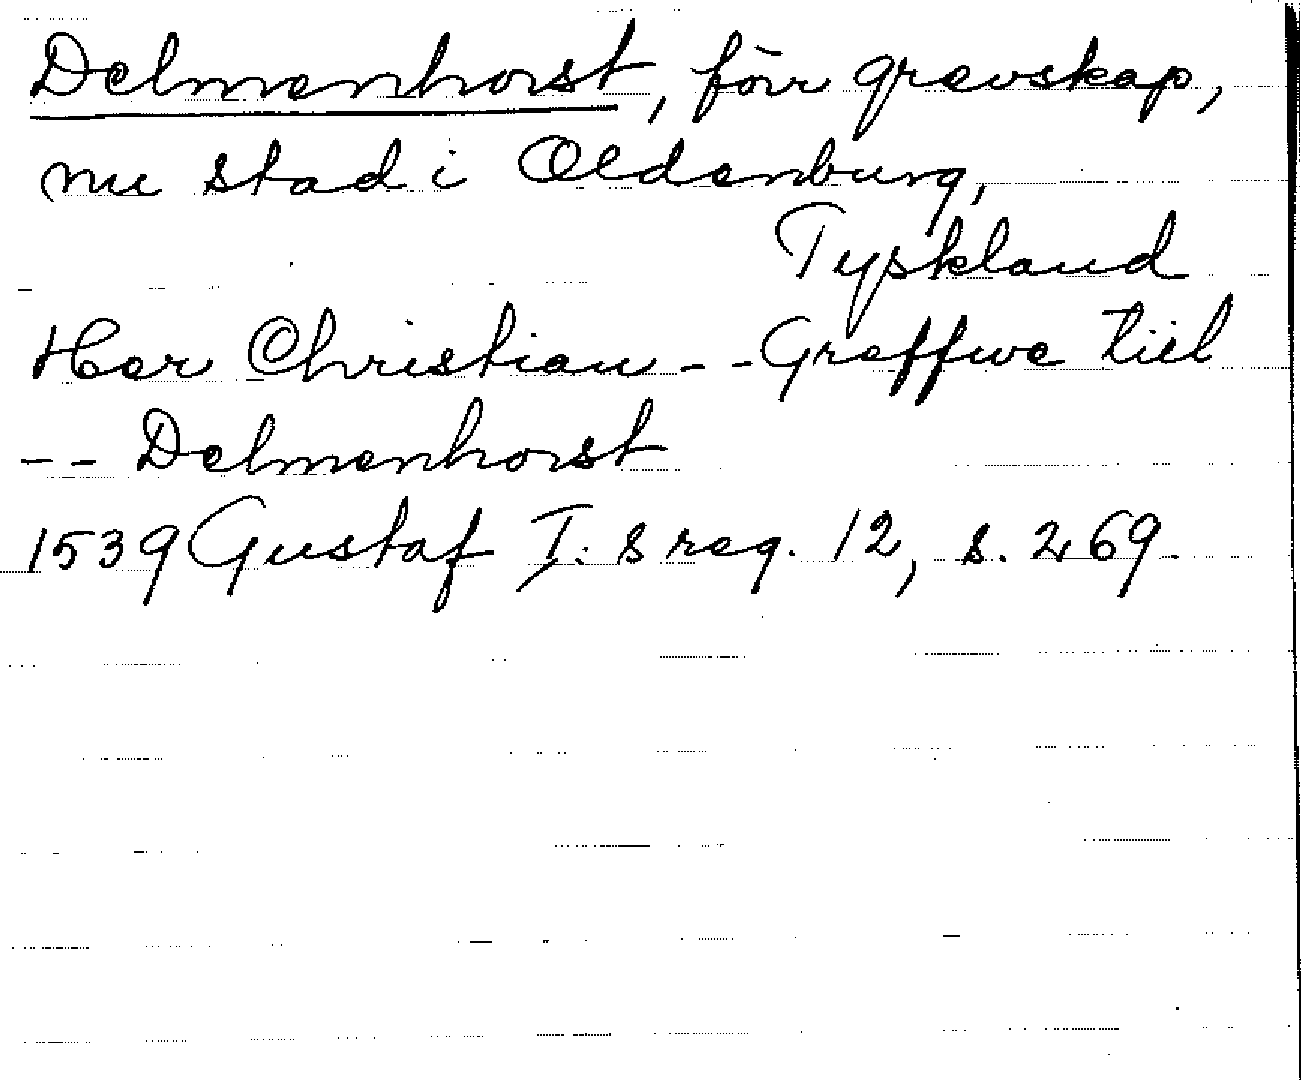 Delmenhorst, förr grevskap,
nu stad i Oldenburg,
Tyskland
Her Christian -- Greffwe tiil
-- Delmenhorst
1539 Gustaf I:s reg. 12, s. 269.